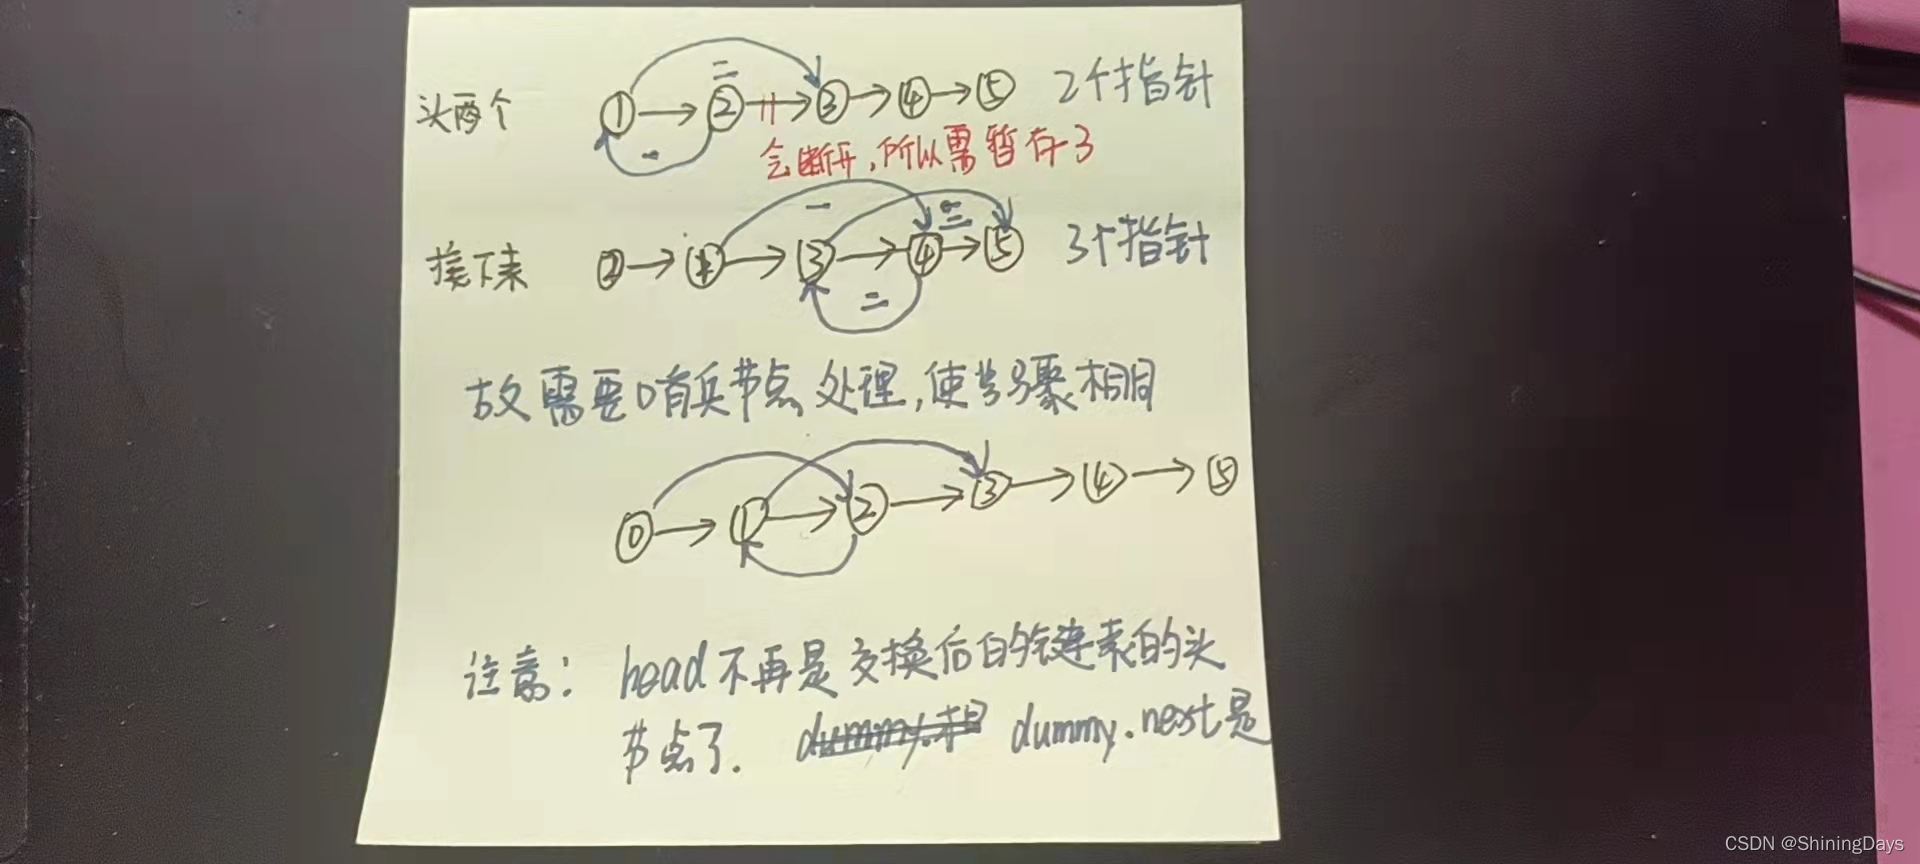 头两个 ① → ② → ③ → ④ → ⑤ 2个指针
二
一
会断开,所以需暂存3
一 三
接下来 ② → ① → ③ → ④ → ⑤ 3个指针
二
故需要哨兵节点处理,使步骤相同
⓪ → ① → ② → ③ → ④ → ⑤
注意: head不再是交换后的链表的头
节点了. dummy.next是
CSDN @ShiningDays